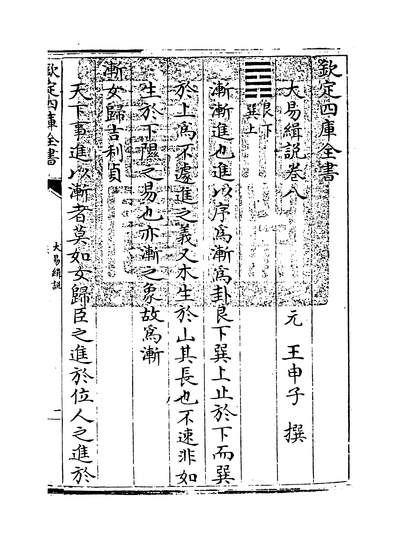 欽定四庫全書
大易緝說卷八
元 王申子 撰
艮下
巽上
漸漸進也進以序為漸為卦艮下巽上止於下而巽
於上為不遽進之義又木生於山其長也不速非如
生於下隰之易也亦漸之象故為漸
漸女歸吉利貞
天下事進以漸者莫如女歸臣之進於位人之進於
欽定四庫全書
大易緝說
一